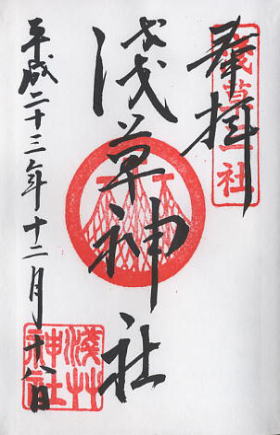 奉拝
浅草神社
平成二十三年十二月十八日
浅草神社